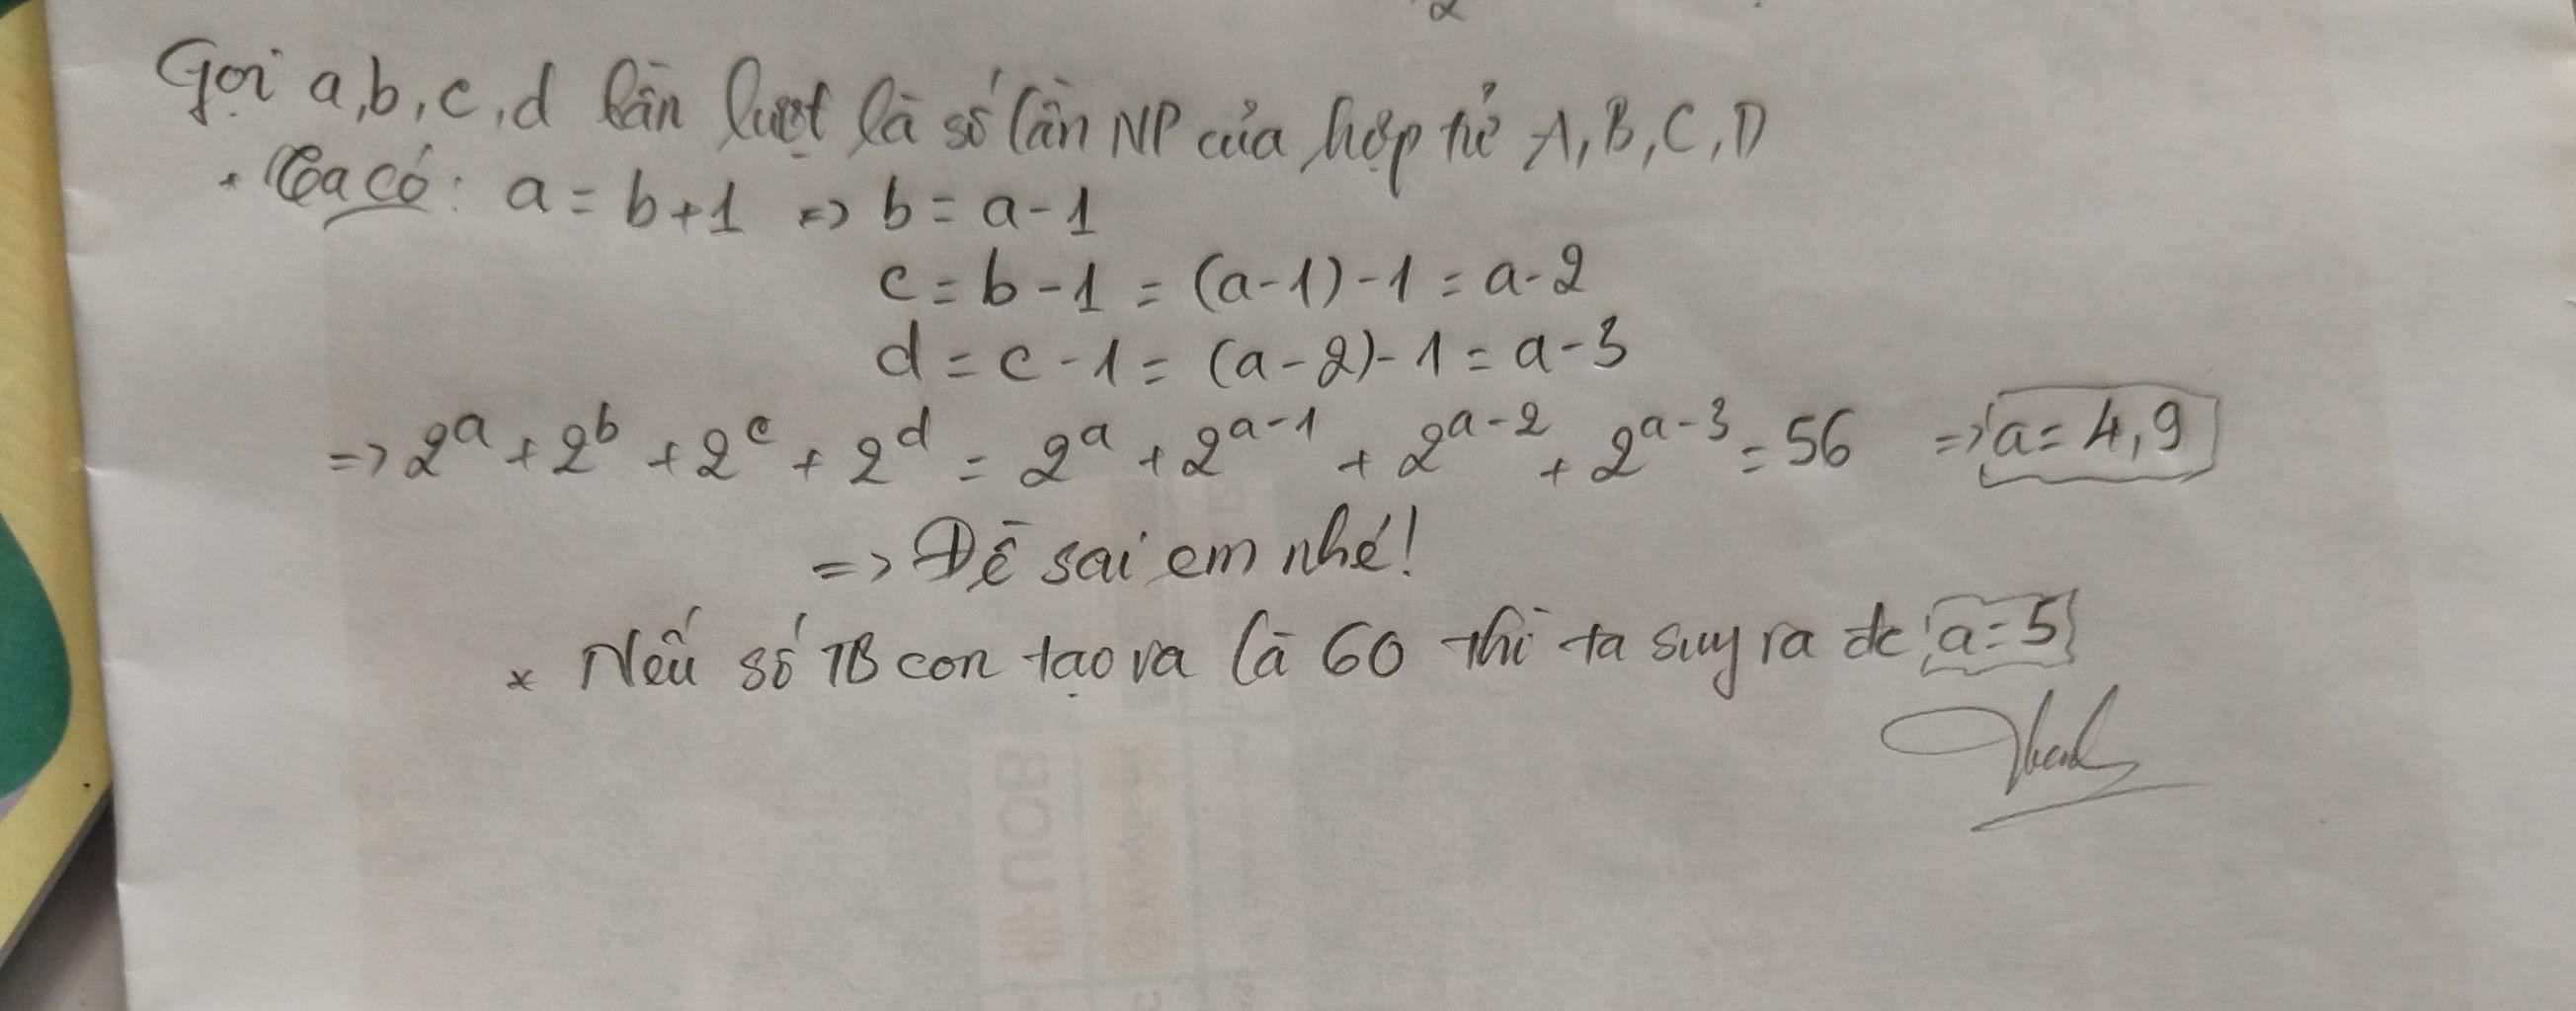 Gọi a, b, c, d lần lượt là số lần NP của hợp tử A, B, C, D
. Ta có: a = b+1 => b = a-1
c = b-1 = (a-1)-1 = a-2
d = c-1 = (a-2)-1 = a-3
=> 2^a + 2^b + 2^c + 2^d = 2^a + 2^{a-1} + 2^{a-2} + 2^{a-3} = 56 => a = 4,9
=> Đề sai em nhé!
* Nếu số TB con tạo ra là 60 thì ta suy ra đc a = 5
UOB